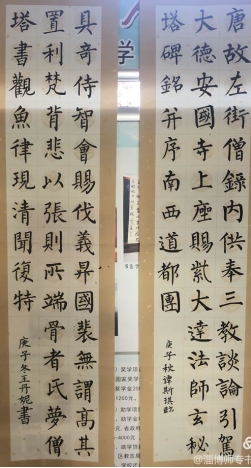 唐故左街僧錄内供奉三教談論引駕
大德安國寺上座賜紫大達法師玄秘
塔碑銘并序南西道都團
庚子秋譚斯琪臨
具奇侍智會賜伐義昇國裴無謂高其
置利梵背悲以張則所端骨者氏夢僧
塔書觀魚律現清聞復特
庚子冬王丹妮書
学
奖学项
国家奖学
助学项
-4000元
@淄博师专书